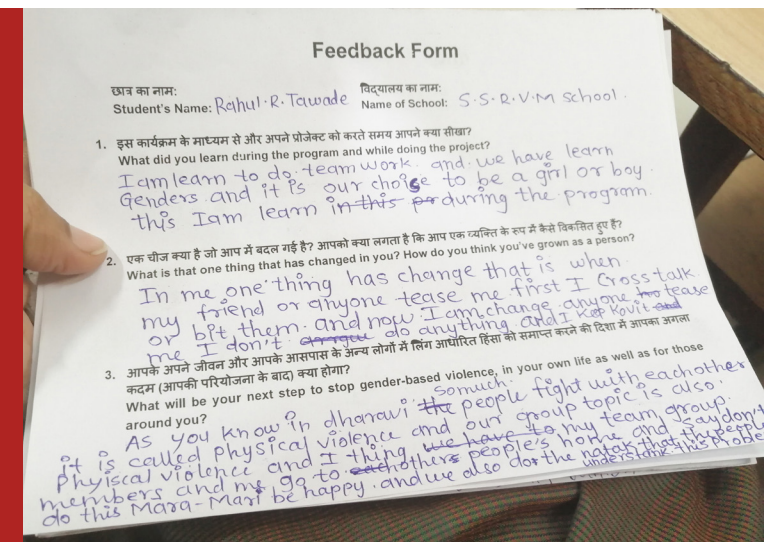 Feedback Form
छात्र का नाम:
Student's Name: Rahul.R.Tawade
विद्यालय का नाम:
Name of School: S.S.R.V.M School.
1. इस कार्यक्रम के माध्यम से और अपने प्रोजेक्ट को करते समय आपने क्या सीखा?
What did you learn during the program and while doing the project?
I am learn to do team work. and we have learn
Genders and it is our choise to be a girl or boy.
this I am learn in this pr during the program.
2. एक चीज क्या है जो आप में बदल गई है? आपको क्या लगता है कि आप एक व्यक्ति के रूप में कैसे विकसित हुए है?
What is that one thing that has changed in you? How do you think you've grown as a person?
In me one thing has change that is when
my friend or anyone tease me first I Cross talk
or bit them. and now I am change anyone tease
me I don't do anything and I kep Kovit
3. आपके अपने जीवन और आपके आसपास के अन्य लोगों में लिंग आधारित हिंसा को समाप्त करने की दिशा में आपका अगला
कदम (आपकी परियोजना के बाद) क्या होगा?
What will be your next step to stop gender-based violence, in your own life as well as for those
around you?
As you know in dharavi the somuch people fight with eachother
it is called physical violence and our group topic is also.
Phyiscal violence and I thing we have to my team group.
members and me go to each others people's home and say don't
do this Mara-Mari be happy. and we also do the natak that in people
understank this proble